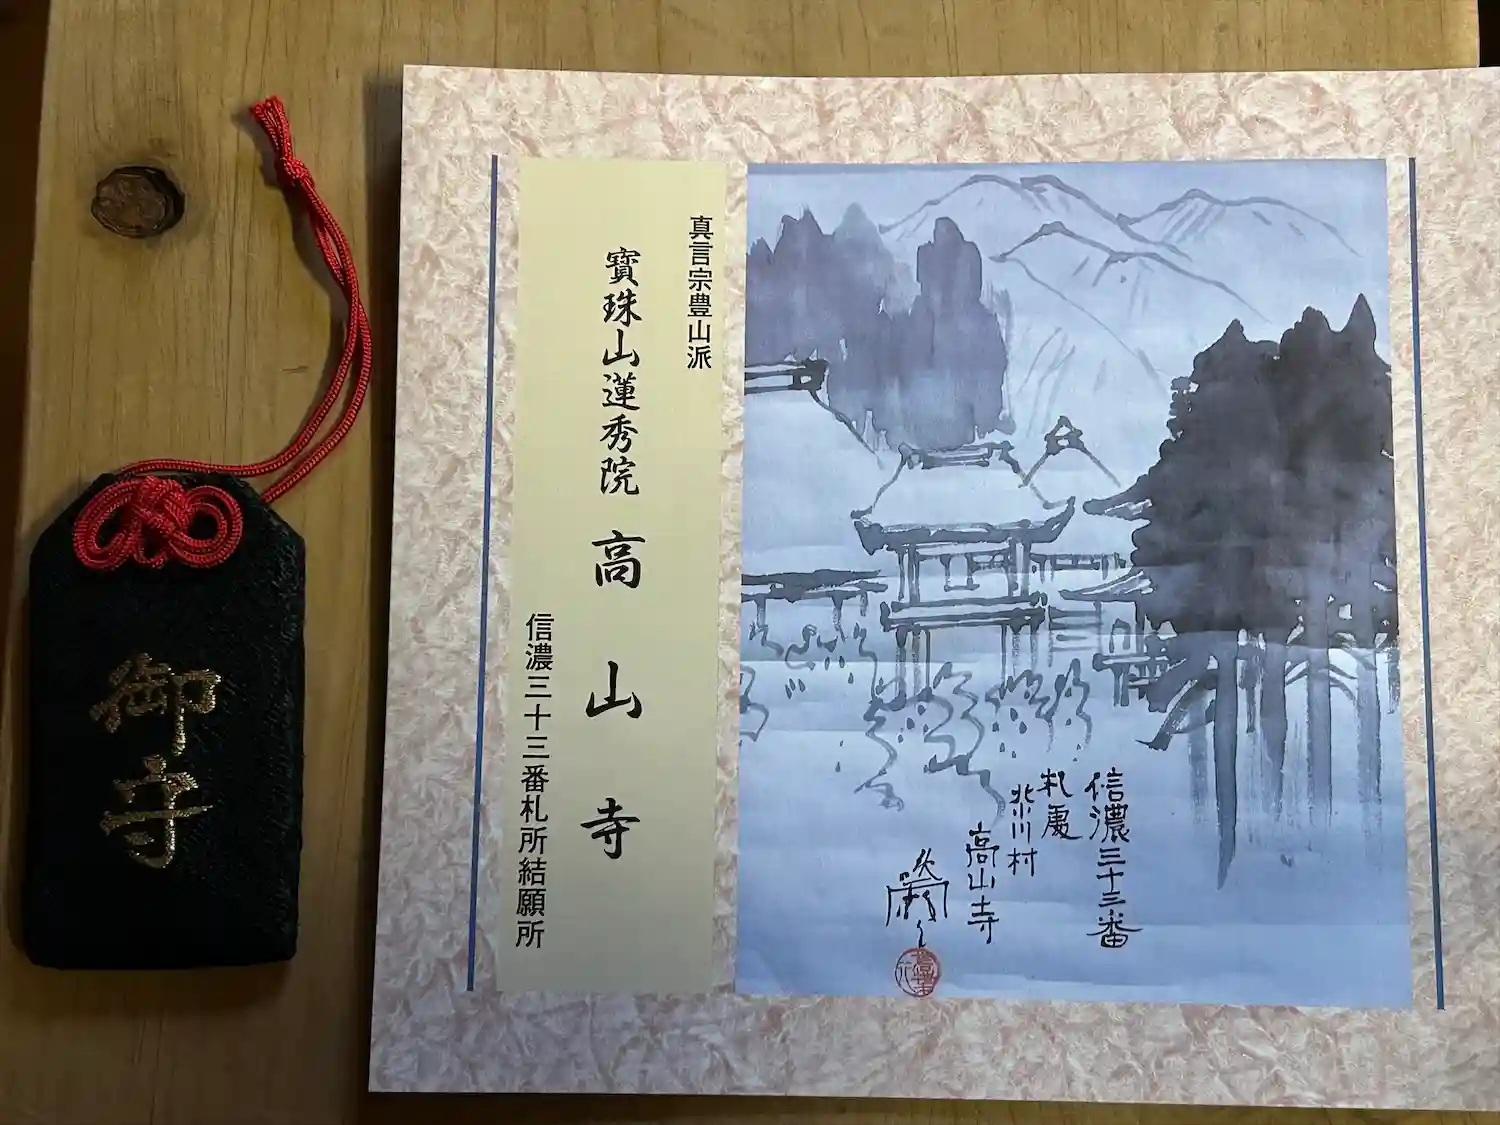 御寺
真言宗豊山派
寶珠山蓮秀院 高山寺
信濃三十三番札所結願所
信濃三十三番
札處
北小川村
高山寺